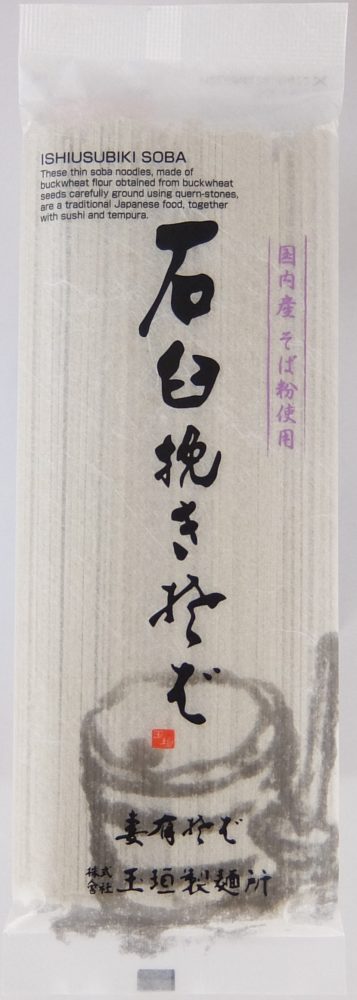 ISHIUSUBIKI SOBA
These thin soba noodles, made of
buckwheat flour obtained from buckwheat
seeds carefully ground using quern-stones,
are a traditional Japanese food, together
with sushi and tempura.
国内産そば粉使用
石臼挽きそば
妻有そば
株式会社玉垣製麺所